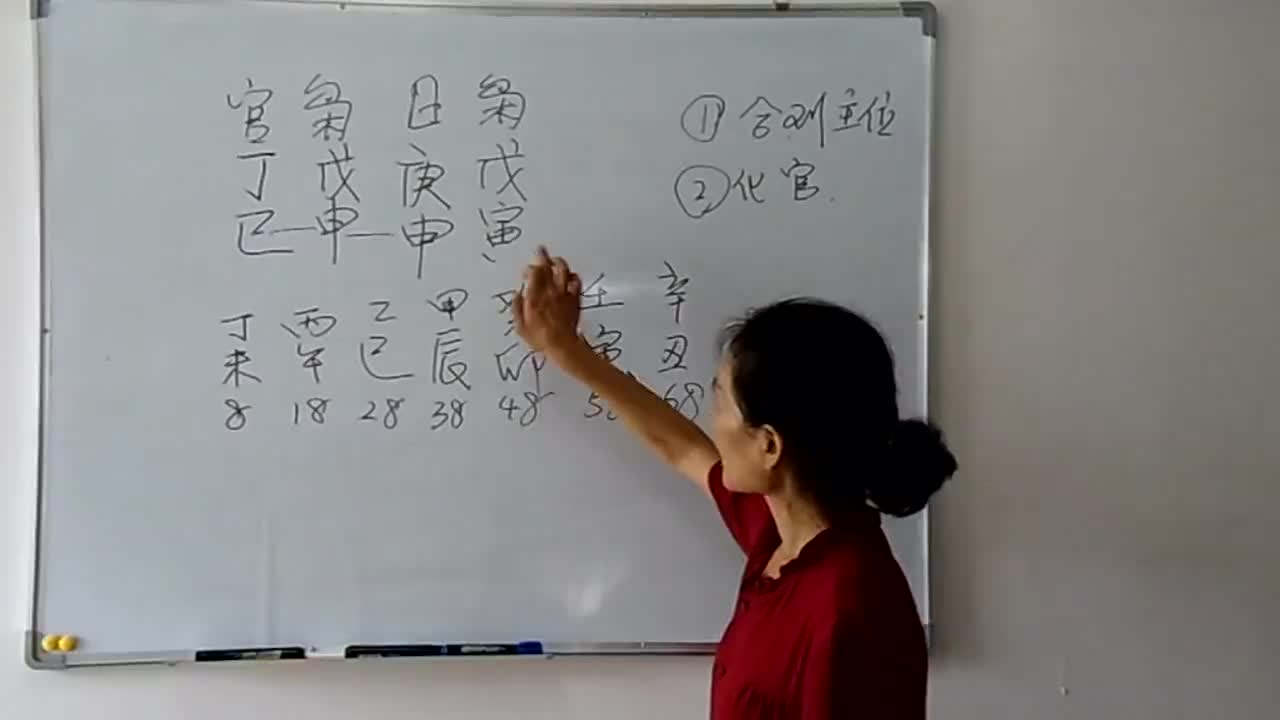 官 枭 日 枭
丁 戊 庚 戊
巳 申 申 寅
① 合到主位
② 化官
丁 丙 乙 甲 癸 壬 辛
未 午 巳 辰 卯 寅 丑
8 18 28 38 48 58 68